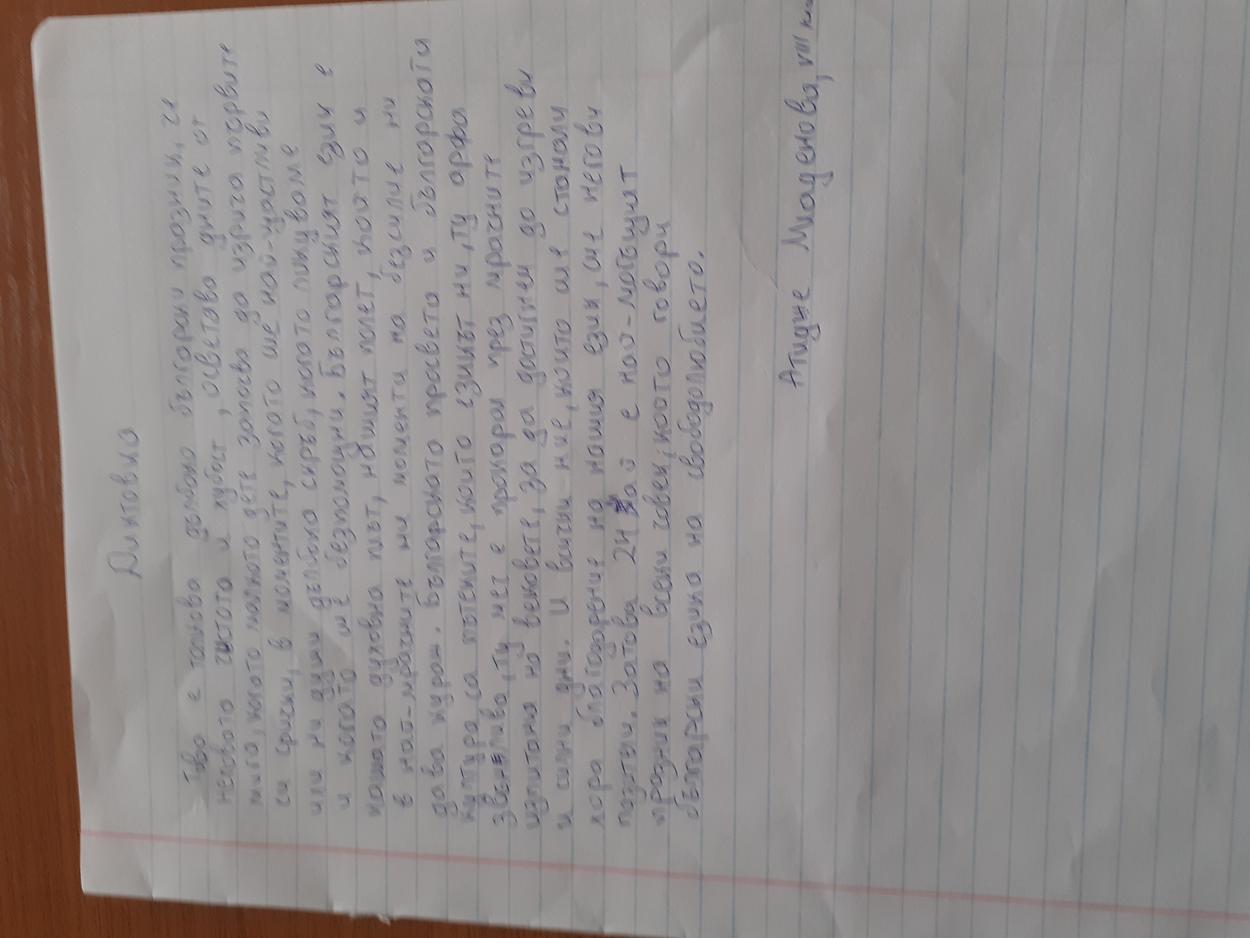 Диктовка
Това е толкова дълбоко български празник, че
неговата чистота и хубост, осветява дните от
мига, когато малкото дете започва да изрича първите
си срички, в моментите, когато сме най-щастливи
или ни души дълбока скръб, когато ликуваме
и когато сме безпомощни. Българският език е
нашата духовна плът, нашият полет, който и
в най-мрачните ни моменти на безсилие ни
дава кураж. Българската просвета и българската
култура са пътеките, които езикът ни, ту арфа
звънлива, ту меч е прокарал през мрачните
изпитания на вековете, за да достигнем до изгреви
и силни дни. И всички ние, които сме станали
хора благодарение на нашия език, сме негови
ратаи. Затова 24 май е най-могъщият
празник на всеки човек, който говори
български езика на свободолюбието.
Атидже Младенова, VIII кл